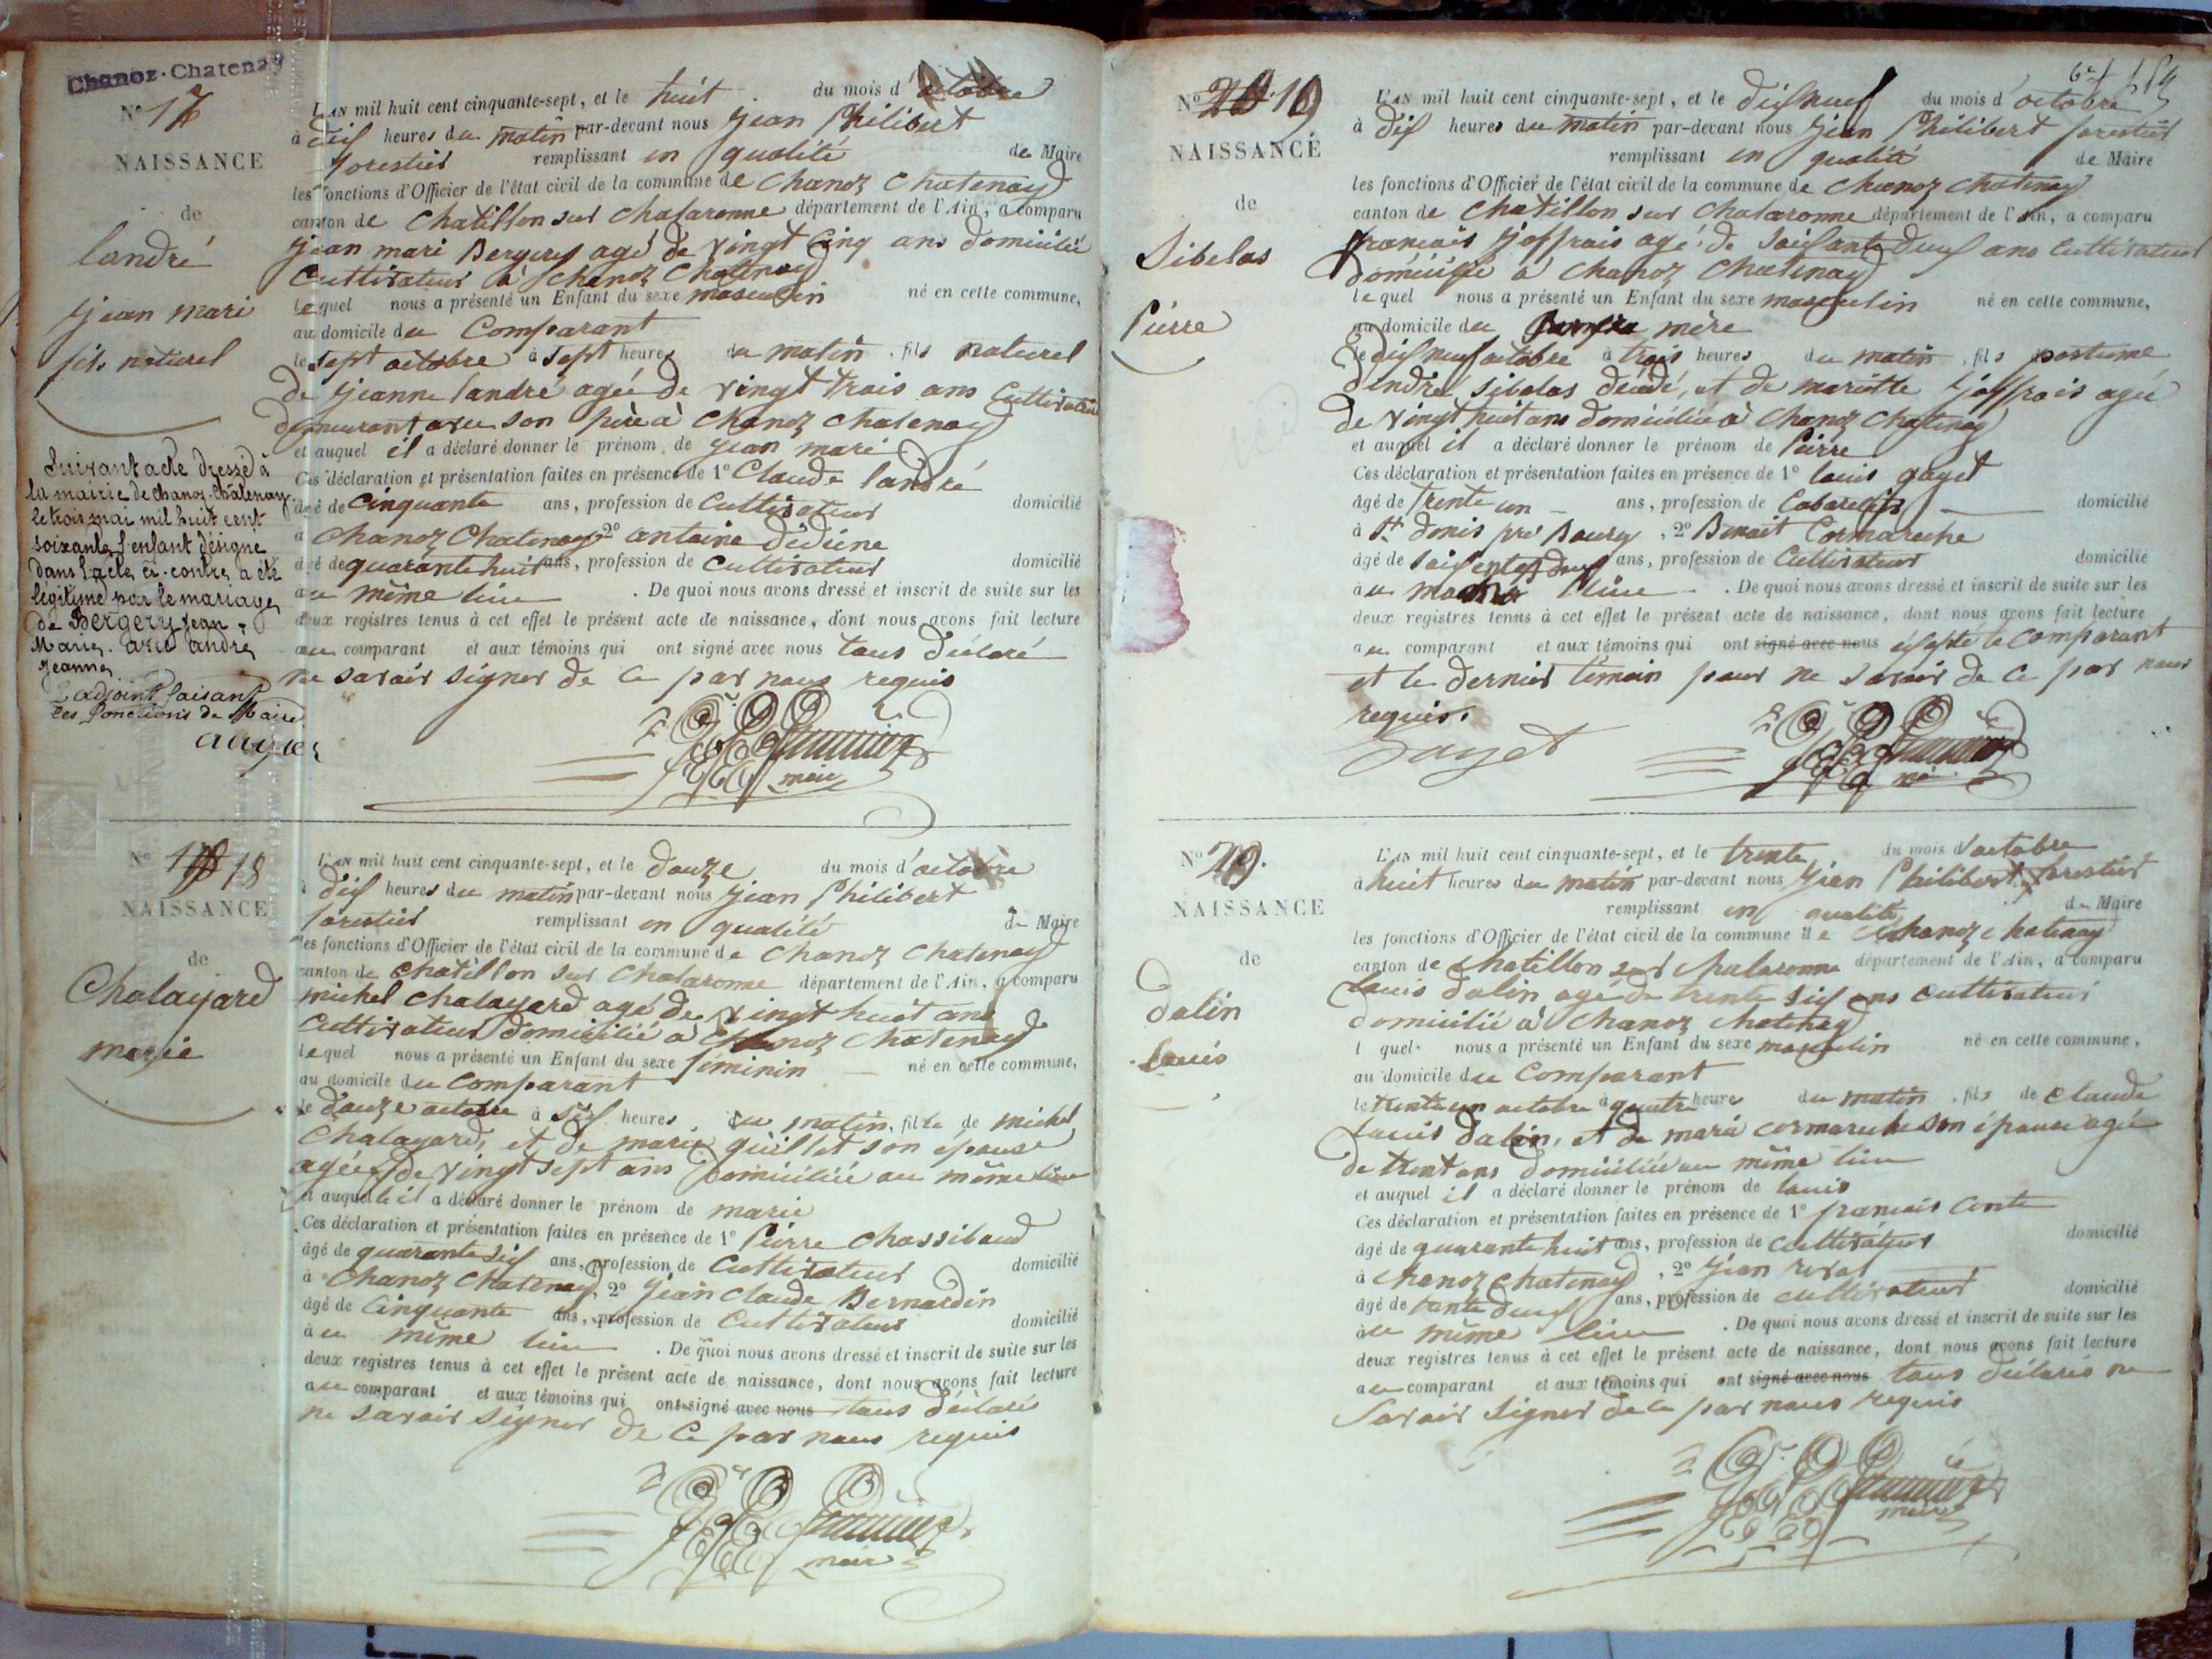 Chanoz-Chatenay
N° 17
NAISSANCE
de
landré
jean mari
fils naturel
L'AN mil huit cent cinquante-sept, et le huit du mois d'octobre
à dix heures du matin par-devant nous jean Philibert
forestier remplissant en qualité de Maire
les fonctions d'Officier de l'état civil de la commune de Chanoz Chatenay
canton de Chatillon sur Chalaronne département de l'Ain, a comparu
jean mari Bergery agé de vingt cinq ans domicilié
Cultivateur à Chanoz Chatenay
lequel nous a présenté un Enfant du sexe masculin né en cette commune,
au domicile du Comparant
le sept octobre à sept heures du matin, fils naturel
de jeanne landré agée de vingt trois ans Cultivateur
demeurant avec son père à Chanoz Chatenay
et auquel il a déclaré donner le prénom de jean mari
Ces déclaration et présentation faites en présence de 1° Claude landré
âgé de Cinquante ans, profession de Cultivateur domicilié
à Chanoz Chatenay 2° antoine
âgé de quarante huit ans, profession de Cultivateur domicilié
au même lieu . De quoi nous avons dressé et inscrit de suite sur les
deux registres tenus à cet effet le présent acte de naissance, dont nous avons fait lecture
au comparant et aux témoins qui ont signé avec nous tous déclaré
ne savoir signer de ce par nous requis
maire
Suivant acte dressé à
la mairie de Chanoz-Châtenay
le trois mai mil huit cent
soixante, l'enfant désigné
dans l'acte ci-contre, a été
légitimé par le mariage
de Bergery Jean-
Marie avec andré
Jeanne
L'adjoint faisant
les fonctions de Maire
N° 18
NAISSANCE
de
Chalayard
marie
L'AN mil huit cent cinquante-sept, et le douze du mois d'octobre
à dix heures du matin par-devant nous jean Philibert
forestier remplissant en qualité de Maire
les fonctions d'Officier de l'état civil de la commune de Chanoz Chatenay
canton de Chatillon sur Chalaronne département de l'Ain, a comparu
michel Chalayard agé de vingt huit ans
Cultivateur domicilié à Chanoz Chatenay
lequel nous a présenté un Enfant du sexe féminin né en cette commune,
au domicile du Comparant
le douze octobre à six heures du matin, fille de michel
Chalayard, et de marie guillet son épouse
agée de vingt sept ans domiciliée au même lieu
et auquelle il a déclaré donner le prénom de marie
Ces déclaration et présentation faites en présence de 1° Pierre Chassibaud
âgé de quarante six ans, profession de Cultivateur domicilié
à Chanoz Chatenay, 2° jean claude Bernardin
âgé de Cinquante ans, profession de Cultivateur domicilié
au même lieu . De quoi nous avons dressé et inscrit de suite sur les
deux registres tenus à cet effet le présent acte de naissance, dont nous avons fait lecture
au comparant et aux témoins qui ont signé avec nous tous déclarés
ne savoir signer de ce par nous requis
maire
N° 20 19
NAISSANCE
de
Sibelas
Pierre
L'AN mil huit cent cinquante-sept, et le dix neuf du mois d'octobre
à dix heures du matin par-devant nous jean Philibert forestier
remplissant en qualité de Maire
les fonctions d'Officier de l'état civil de la commune de Chanoz Chatenay
canton de Chatillon sur Chalaronne département de l'Ain, a comparu
francois joffrais agé de soixante deux ans Cultivateur
domicilié à Chanoz Chatenay
lequel nous a présenté un Enfant du sexe masculin né en cette commune,
au domicile du mère
le dix neuf octobre à trois heures du matin, fils postume
dandré Sibelas décédé, et de mariette joffrais agée
de vingt huit ans domiciliée à Chanoz Chatenay
et auquel il a déclaré donner le prénom de Pierre
Ces déclaration et présentation faites en présence de 1° louis gaget
âgé de trente un ans, profession de Cabaretier domicilié
à St denis pré Bourg, 2° Benoit Cormareche
âgé de soixante deux ans, profession de Cultivateur domicilié
au lieu . De quoi nous avons dressé et inscrit de suite sur les
deux registres tenus à cet effet le présent acte de naissance, dont nous avons fait lecture
au comparant et aux témoins qui ont signé avec nous le Comparant
et le dernier témoin pour ne savoir de ce par nous
requis.
Gayet
maire
N° 20.
NAISSANCE
de
dalin
louis
L'AN mil huit cent cinquante-sept, et le trente du mois d'octobre
à huit heures du matin par-devant nous jean Philibert forestier
remplissant en qualité de Maire
les fonctions d'Officier de l'état civil de la commune de Chanoz Chatenay
canton de Chatillon sur Chalaronne département de l'Ain, a comparu
louis dalin agé de trente six ans cultivateur
domicilié à Chanoz Chatenay
l quel nous a présenté un Enfant du sexe masculin né en cette commune,
au domicile du Comparant
le trente un octobre à quatre heure du matin, fils de claude
louis dalin, et de marie cormareche son épouse agée
de trent ans domiciliée au même lieu
et auquel il a déclaré donner le prénom de louis
Ces déclaration et présentation faites en présence de 1° francois Conte
âgé de quarante huit ans, profession de cultivateur domicilié
à Chanoz Chatenay, 2° jean
âgé de trente deux ans, profession de cultivateur domicilié
au même lieu . De quoi nous avons dressé et inscrit de suite sur les
deux registres tenus à cet effet le présent acte de naissance, dont nous avons fait lecture
au comparant et aux témoins qui ont signé avec nous tous déclarés ne
savoir signer de ce par nous requis
maire